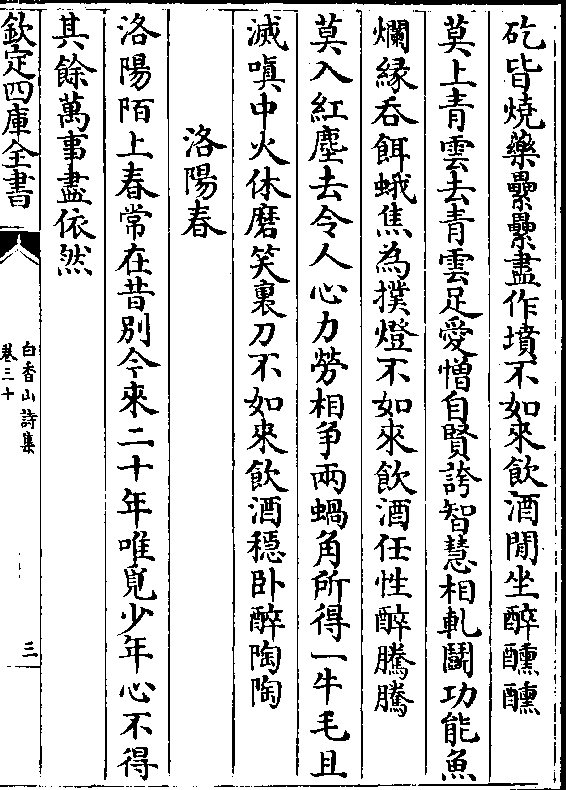 矻皆燒藥纍纍盡作墳不如來飲酒閒坐醉醺醺
莫上青雲去青雲足愛憎自賢誇智慧相軋鬬功能魚
爛縁吞餌蛾焦為撲燈不如來飲酒任性醉騰騰
莫入紅塵去令人心力勞相争兩蝸角所得一牛毛且
滅嗔中火休磨笑裏刀不如來飲酒穩卧醉陶陶
洛陽春
洛陽陌上春常在昔別今來二十年唯覓少年心不得
其餘萬事盡依然
欽定四庫全書
白香山詩集
卷三十
三